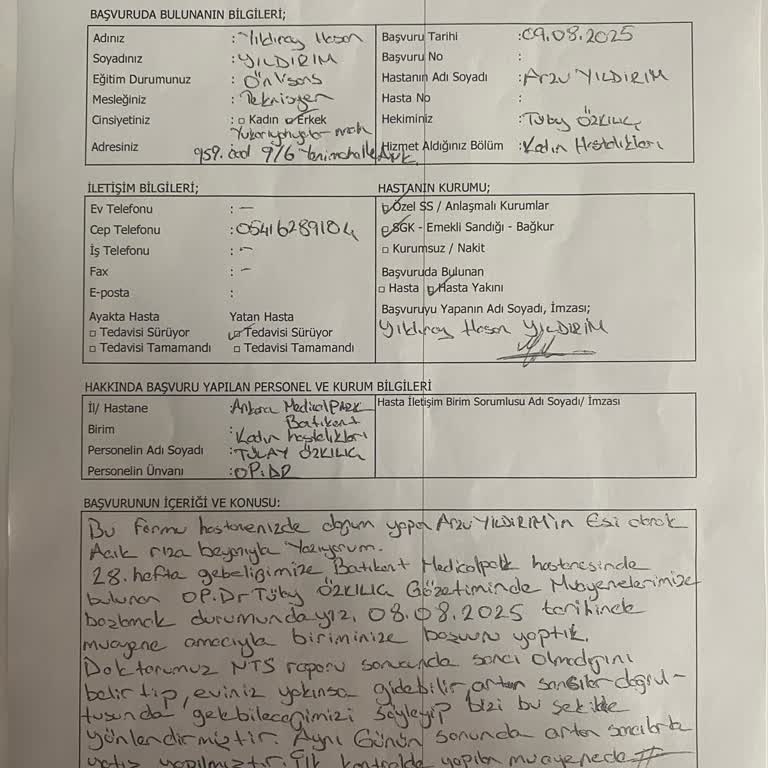 BAŞVURUDA BULUNANIN BİLGİLERİ;
Adınız : Yıldıray Hasan
Soyadınız : YILDIRIM
Eğitim Durumunuz : Ön lisans
Mesleğiniz : Teknisyen
Cinsiyetiniz : □ Kadın ☑ Erkek
mah
Adresiniz 959. cad 9/6 Yenimahalle/Ank
Başvuru Tarihi : 09.08.2025
Başvuru No :
Hastanın Adı Soyadı : Arzu YILDIRIM
Hasta No :
Hekiminiz : Tülay ÖZKILIÇ
Hizmet Aldığınız Bölüm : Kadın Hastalıkları
İLETİŞİM BİLGİLERİ;
Ev Telefonu : —
Cep Telefonu : 05416289104
İş Telefonu : —
Fax : —
E-posta :
Ayakta Hasta Yatan Hasta
□ Tedavisi Sürüyor ☑ Tedavisi Sürüyor
□ Tedavisi Tamamandı □ Tedavisi Tamamandı
HASTANIN KURUMU;
☑ Özel SS / Anlaşmalı Kurumlar
☑ SGK - Emekli Sandığı - Bağkur
□ Kurumsuz / Nakit
Başvuruda Bulunan
□ Hasta ☑ Hasta Yakını
Başvuruyu Yapanın Adı Soyadı, İmzası;
Yıldıray Hasan YILDIRIM
HAKKINDA BAŞVURU YAPILAN PERSONEL VE KURUM BİLGİLERİ
İl/ Hastane Ankara MedicalPARK
Batıkent
Birim : Kadın hastalıkları
Personelin Adı Soyadı : TÜLAY ÖZKILIÇ
Personelin Ünvanı : OP.DR
Hasta İletişim Birim Sorumlusu Adı Soyadı/ İmzası
BAŞVURUNUN İÇERİĞİ VE KONUSU:
Bu formu hastanenizde doğum yapan Arzu YILDIRIM'ın Eşi olarak
Açık rıza beyanıyla Yazıyorum.
28. hafta gebeliğimize Batıkent Medicalpark hastanesinde
bulunan OP.Dr Tülay ÖZKILIÇ Gözetiminde Muayenelerimize
başlamak durumundayız. 08.08.2025 tarihinde
muayene amacıyla biriminize başvuru yaptık.
Doktorumuz NTS raporu sonucunda sancı olmadığını
belirtip, eviniz yakınsa gidebilir, artan sancılar doğrul-
tusunda gelebileceğimizi söyleyip bizi bu şekilde
yönlendirmiştir. Aynı Günün sonunda artan sancılarla
yatış yapılmıştır. İlk kontrolde yapılan muayenede